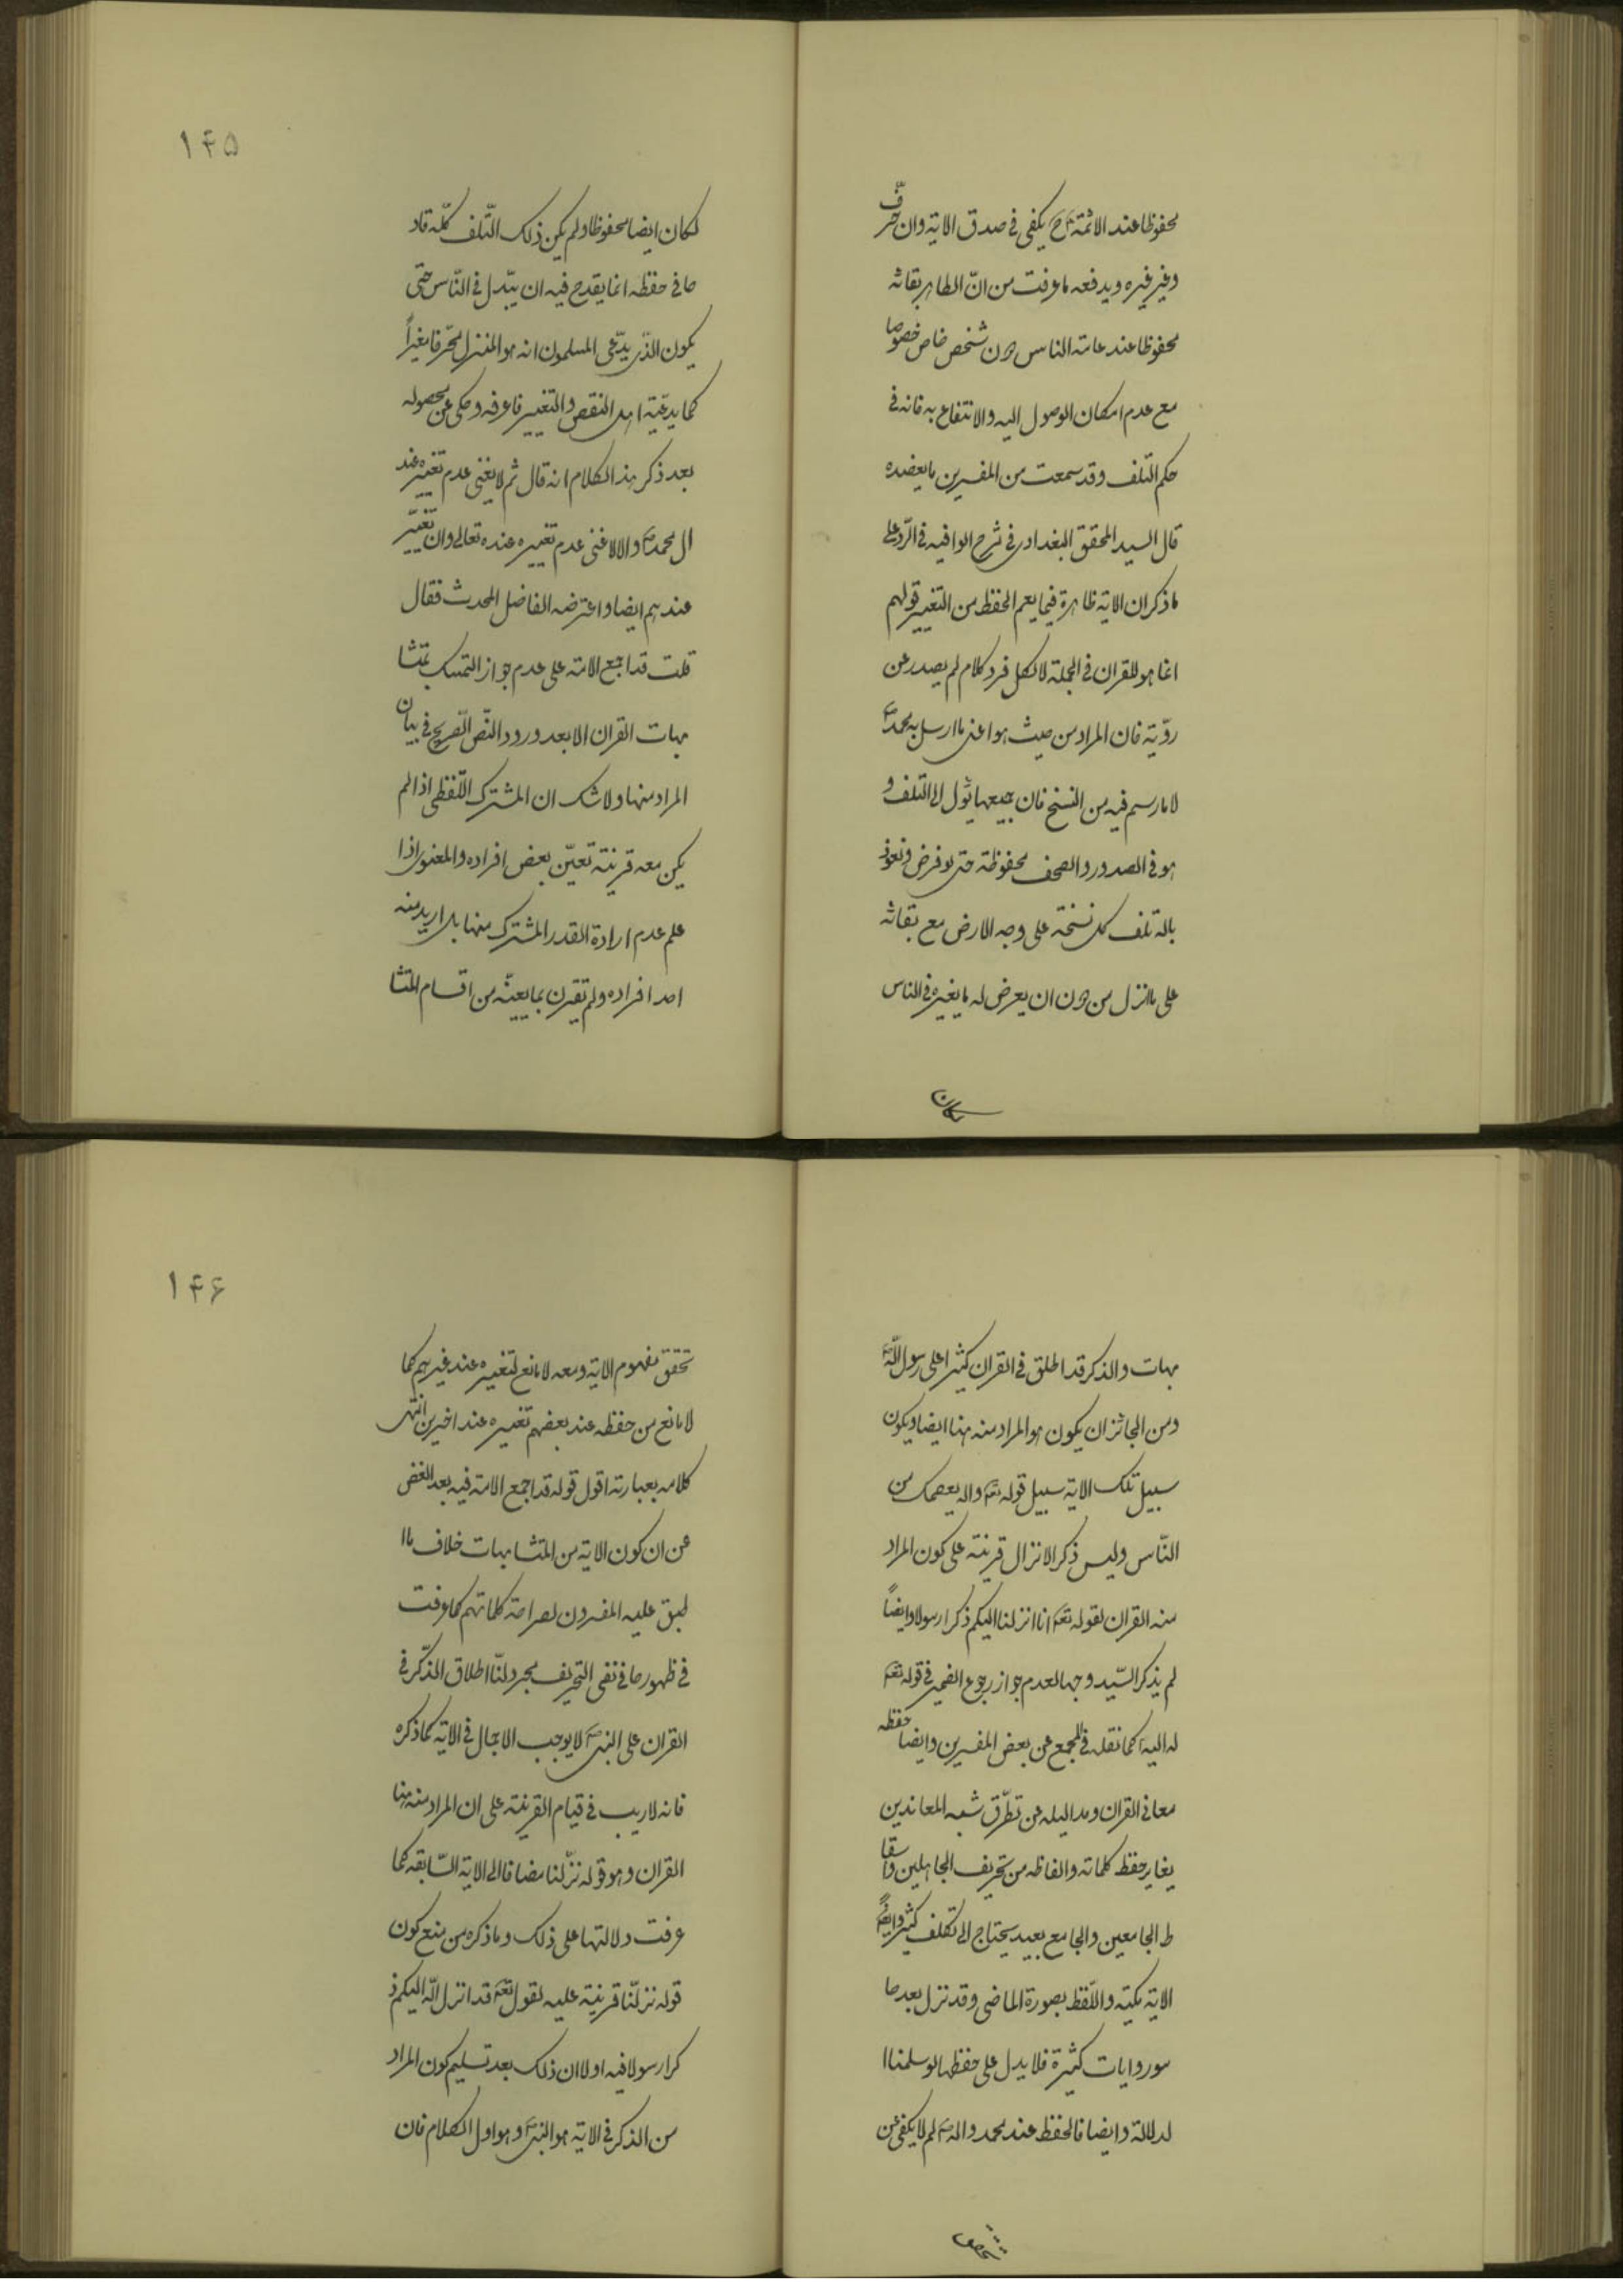 محفوظا عند الائمة ع يكفى فى صدق الاية وان حرّف
وغير غيره ويدفعه ما عرفت من انّ الظاهر بقائه
محفوظا عند عامة الناس دون شخص خاص خصوصا
مع عدم امكان الوصول اليه والانتفاع به فانه فى
حكم التلف وقد سمعت من المفسرين ما يعضده
قال السيد المحقق البغدادى فى شرح الوافيه فى الرّد على
ما ذكر ان الاية ظاهرة فيما يعم الحفظ من التغيير قولهم
انما هو للقران فى الجملة لا لكل فرد كلام لم يصدر عن
رويّة فان المراد من حيث هو اعنى ما ارسل به محمد ص
لا ما رسم فيه من النسخ فان جميعها يئول الى التلف و
هو فى الصدور والصحف محفوظة حتى لو فرض ونعوذ
بالله تلف كل نسخة على وجه الارض مع بقائه
على ما انزل من دون ان يعرض له ما يغيره فى الناس
لكان
١٤٥
لكان ايضا محفوظا ولم يكن ذلك التّلف كلّه قاد
حا فى حفظه انما يقدح فيه ان يبّدل فى النّاس حتى
يكون الذّى يدّعى المسلمون انه هو المنزل محّرفا مغيراً
كما يدعّية اهل النقص والتغيير فاعرفه وحكى عن محصوله
بعد ذكر هذا الكلام انه قال ثم لا يغنى عدم تغييره عند
ال محمد ص والا لاغنى عدم تغييره عنده تعالى وان تغيّر
عندهم ايضا واعترضه الفاضل المحدث فقال
قلت قد اجمع الامة على عدم جواز التمسك بمتشا
بهات القران الا بعد ورود النّص الصّريح فى بيان
المراد منها ولا شك ان المشترك اللّفظى اذا لم
يكن معه قرينة تعيّن بعض افراده والمعنوى اذا
علم عدم ارادة القدر المشترك منها بل اريد منه
احد افراده ولم تقترن بما يعينّه من اقسام المتشا
بهات والذكر قد اطلق فى القران كثيرا على رسول الله ص
ومن الجائز ان يكون هو المراد منه هنا ايضا ويكون
سبيل تلك الاية سبيل قوله تعه والله يعصمك من
النّاس وليس ذكر الانزال قرينة على كون المراد
منه القران لقوله تعه انا انزلنا اليكم ذكرا رسولا وايضاً
لم يذكر السّيد وجها لعدم جواز رجوع الضمير فى قوله تعه
له اليه كما نقله فى المجمع عن بعض المفسرين وايضا حفظه
معانى القران ومداليله عن تطّرق شبه المعاندين
يغاير حفظ كلماته والفاظه من تحريف الجاهلين واسقا
ط الجامعين والجامع بعيد يحتاج الى تكلف كثير وايضاً
الاية مكيّة واللّفظ بصورة الماضى وقد نزل بعدها
سور وايات كثيرة فلا يدل على حفظها لو سلمنا ا
لدلالة وايضا فالحفظ عند محمد واله ص لم لا يكفى عن
١٤٦
تحقق مفهوم الاية ومعه لا مانع لتغييره عند غيرهم كما
لا مانع من حفظه عند بعضهم تغييره عند اخيرين انتهى
كلامه بعبارته اقول قوله قد اجمع الامة فيه بعد الغض
عن ان كون الاية من المتشابهات خلاف ما ا
طبق عليه المفسرون لصراحة كلماتهم كما عرفت
فى ظهورها فى نفى التحريف مجرد لنّا اطلاق الذّكر فى
القران على النبى ص لا يوجب الاجمال فى الاية كما ذكره
فانه لا ريب فى قيام القرينة على ان المراد منه هنا
القران وهو قوله نزّلنا مضافا الى الاية السّابقه كما
عرفت دلالتها على ذلك وما ذكره من منع كون
قوله نزلنّا قرينة عليه لقول تعه قد انزل الله اليكم ذ
كرا رسولا فيه اولا ان ذلك بعد تسليم كون المراد
من الذكر فى الاية هو النبى ص وهو اول الكلام فان